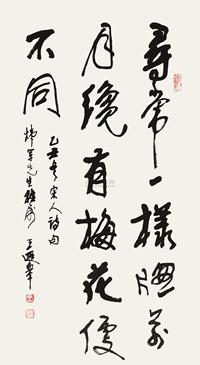 尋常一樣窗前
月纔有梅花便
不同
乙丑春宋人詩句
煒軍先生雅屬
王遐舉